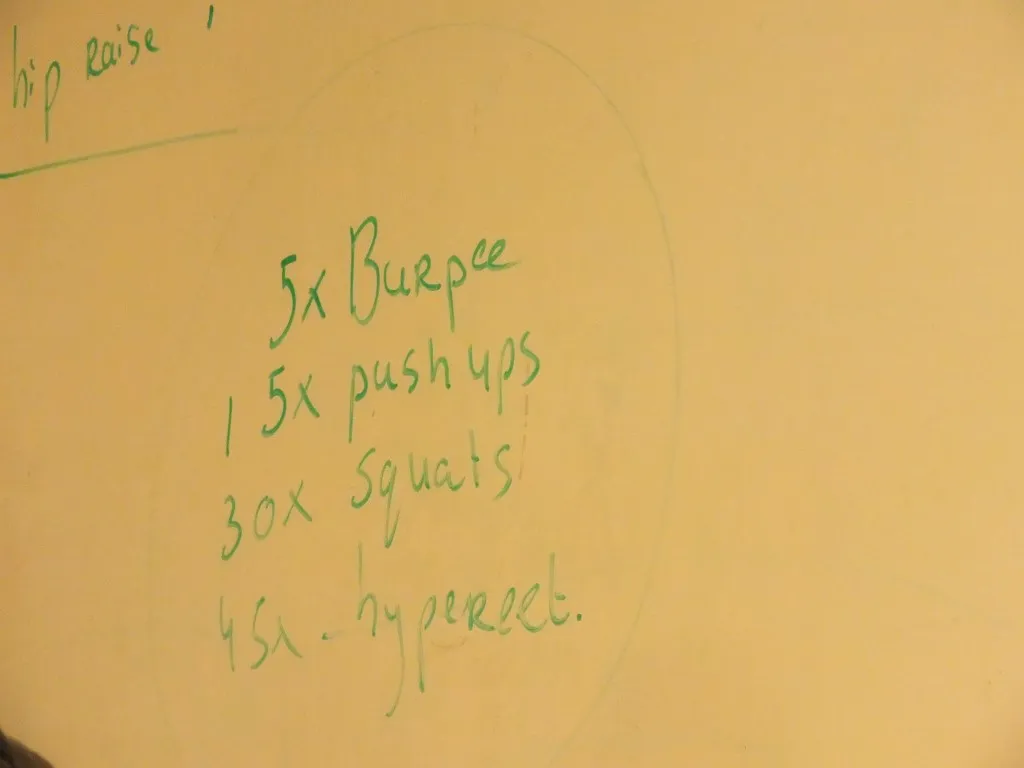 hip raise
5x Burpee
15x push ups
30x squats
45x